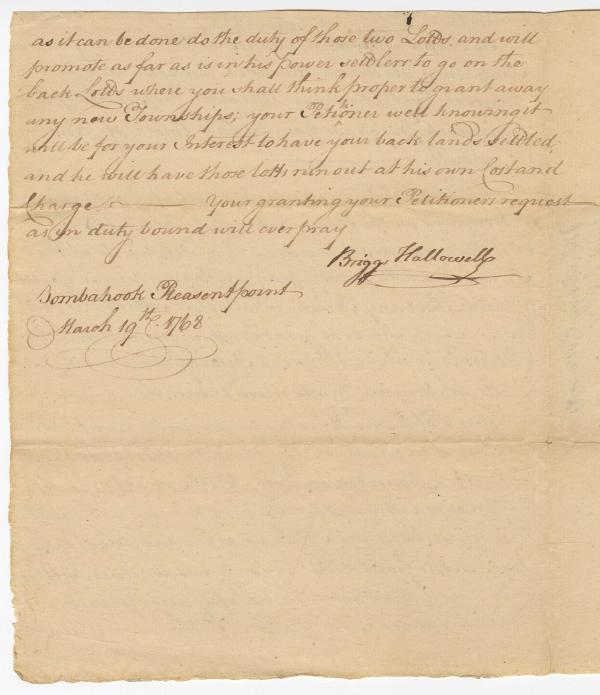 as it can be done do the duty of those two Lotts, and will
promote as far as is in his power settlers to go on the
back Lotts where you shall think proper to grant away
any new Townships; your Petitioner well knowing it
will be for your Interest to have your back lands settled,
and he will have those lotts run out at his own Cost and
Charge — Your granting your Petitioners request
as in duty bound will ever pray
Brigg Hallowell
Bombahook Pleasent point
March 19th. 1768